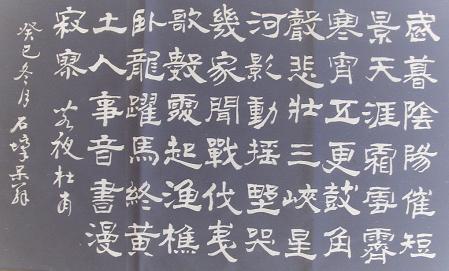 歲暮陰陽催短
景天涯霜雪霽
寒宵五更鼓角
聲悲壯三峽星
河影動搖墅哭
幾家聞戰伐夷
歌數處起漁樵
臥龍躍馬終黃
土人事音書漫
寂寥 閣夜杜甫
癸巳冬月石